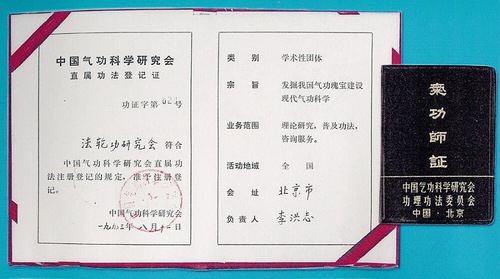 中国气功科学研究会
直属功法登记证
功证字第 号
法轮功研究会 符合
中国气功科学研究会直属功
法注册登记的规定，准于注册登
记。
中国气功科学研究会
一九九三年八月十一日
类别 学术性团体
宗旨 发掘我国气功瑰宝建设
现代气功科学
业务范围 理论研究，普及功法，
咨询服务。
活动地域 全国
会址 北京市
负责人 李洪志
氣功師証
中国气功科学研究会
功理功法委员会
中国·北京